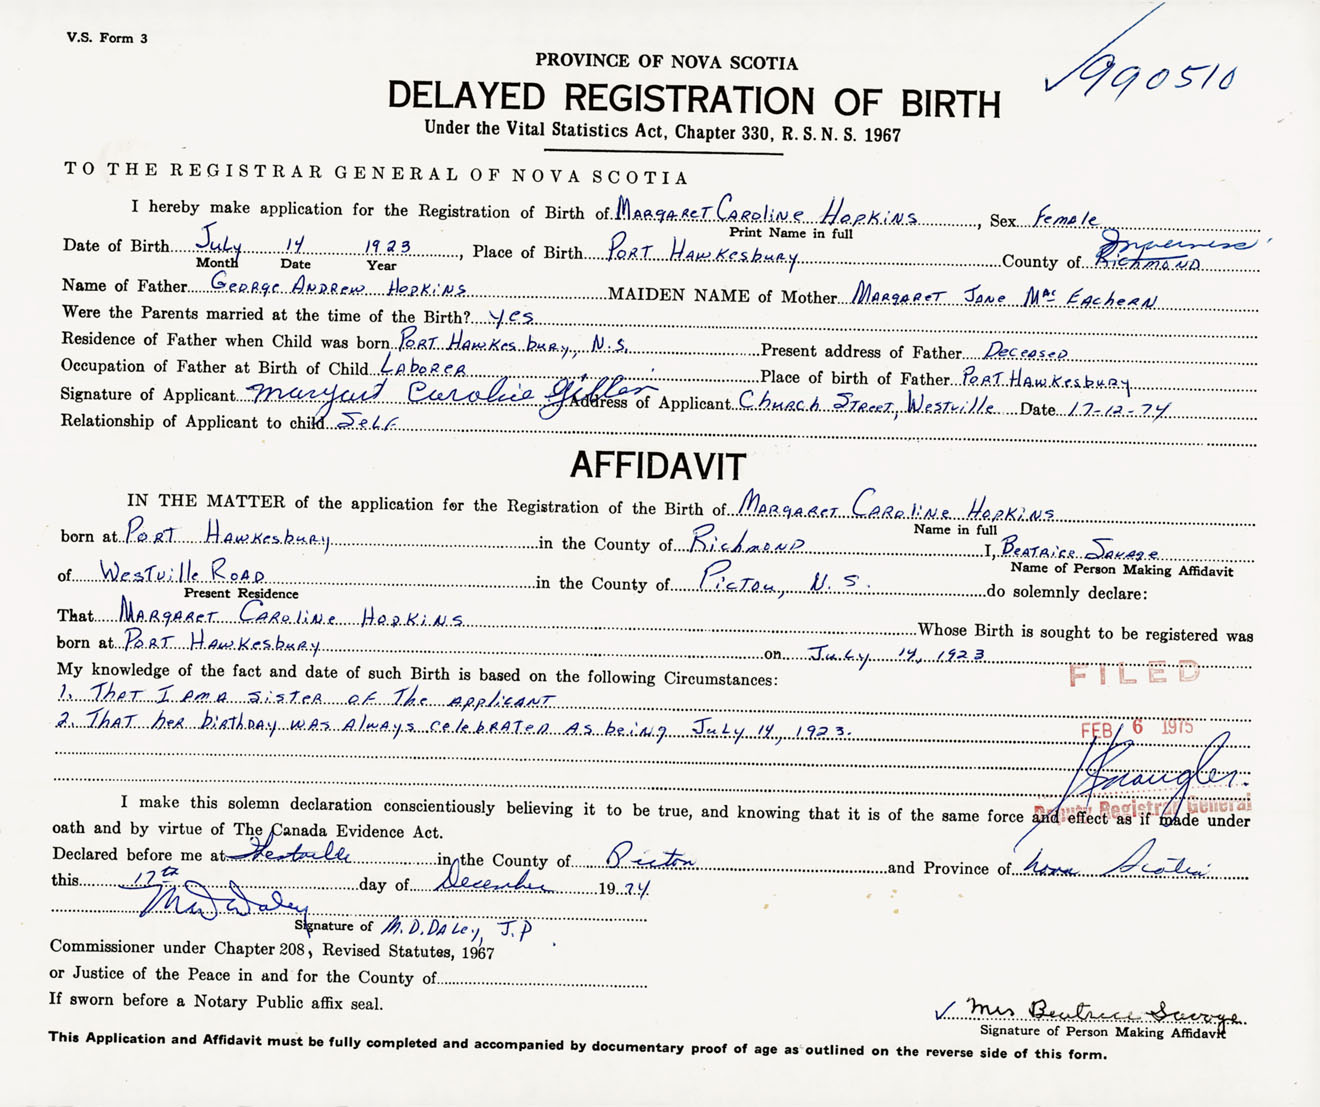 V.S. Form 3
990510
PROVINCE OF NOVA SCOTIA
DELAYED REGISTRATION OF BIRTH
Under the Vital Statistics Act, Chapter 330, R. S. N. S. 1967
TO THE REGISTRAR GENERAL OF NOVA SCOTIA
I hereby make application for the Registration of Birth of MARGARET CAROLINE HOPKINS, Sex Female
Print Name in full
Inverness
Date of Birth July 14 1923, Place of Birth PORT HAWKESBURY County of RICHMOND
Month Date Year
Name of Father GEORGE ANDREW HOPKINS MAIDEN NAME of Mother MARGARET JANE MacEACHERN
Were the Parents married at the time of the Birth? yes
Residence of Father when Child was born PORT HAWKESBURY, N.S. Present address of Father DECEASED
Occupation of Father at Birth of Child LABORER Place of birth of Father PORT HAWKESBURY
Signature of Applicant Margaret Caroline Address of Applicant CHURCH STREET, WESTVILLE Date 17-12-74
Relationship of Applicant to child SELF
AFFIDAVIT
IN THE MATTER of the application for the Registration of the Birth of MARGARET CAROLINE HOPKINS
Name in full
born at PORT HAWKESBURY in the County of RICHMOND I, BEATRICE SAVAGE
Name of Person Making Affidavit
of WESTVILLE ROAD in the County of PICTOU, N.S. do solemnly declare:
Present Residence
That MARGARET CAROLINE HOPKINS Whose Birth is sought to be registered was
born at PORT HAWKESBURY on July 14, 1923
My knowledge of the fact and date of such Birth is based on the following Circumstances:
FILED
1. THAT I AM A SISTER OF THE APPLICANT
2. THAT her birthday was always celebrated as being July 14, 1923.
FEB 6 1975
I make this solemn declaration conscientiously believing it to be true, and knowing that it is of the same force and effect as if made under
Deputy Registrar General
oath and by virtue of The Canada Evidence Act.
Declared before me at Westville in the County of Pictou and Province of Nova Scotia
this 17th day of December 1974.
M D Daley
Signature of M.D. DALEY, J.P
Commissioner under Chapter 208, Revised Statutes, 1967
or Justice of the Peace in and for the County of
If sworn before a Notary Public affix seal.
Mrs Beatrice Savage
Signature of Person Making Affidavit
This Application and Affidavit must be fully completed and accompanied by documentary proof of age as outlined on the reverse side of this form.